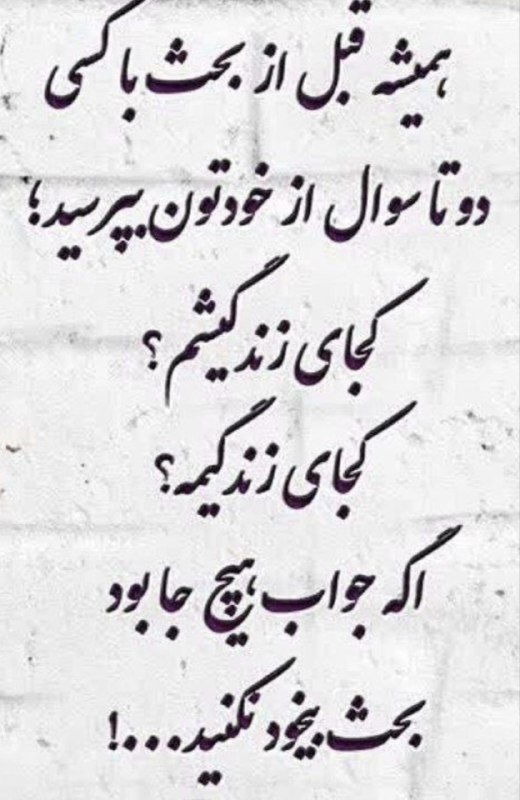 همیشه قبل از بحث با کسی
دو تا سوال از خودتون بپرسید؛
کجای زندگیشم؟
کجای زندگیمه؟
اگه جواب هیچ جا بود
بحث بیخود نکنید...!